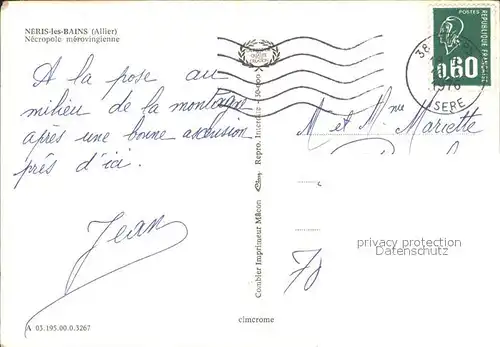 NÉRIS-les-BAINS (Allier)
Nécropole mérovingienne
A la pose au
milieu de la montagne
après une bonne ascension
près d'ici.
Jean
A 03.195.00.0.3267
Combier Imprimeur Mâcon
Repro. Interdite
cimcrome
POSTES
REPUBLIQUE FRANCAISE
0,60
38
1976
ISERE
M et Mme Mariette
privacy protection
watermark